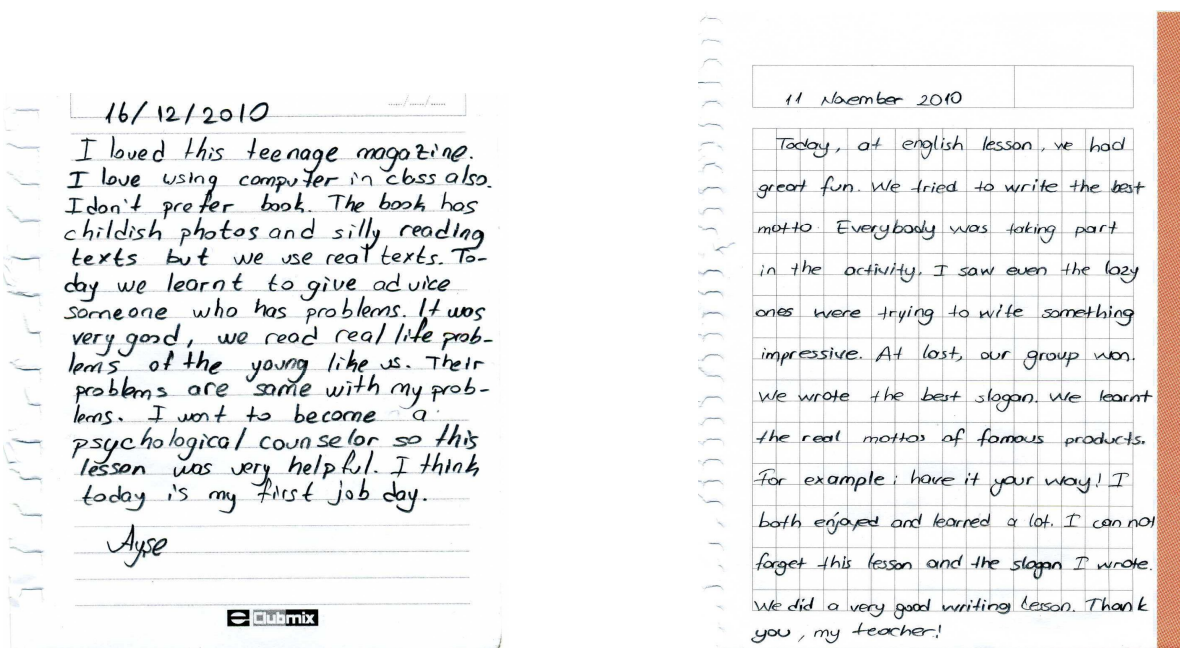 16/12/2010
I loved this teenage magazine.
I love using computer in class also.
I don't prefer book. The book has
childish photos and silly reading
texts but we use real texts. To-
day we learnt to give advice
someone who has problems. It was
very good, we read real life prob-
lems of the young like us. Their
problems are same with my prob-
lems. I want to become a
psychological counselor so this
lesson was very helpful. I think
today is my first job day.
Ayse
Clubmix
11 November 2010
Today, at english lesson, we had
great fun. We tried to write the best
motto. Everybody was taking part
in the activity. I saw even the lazy
ones were trying to wite something
impressive. At last, our group won.
We wrote the best slogan. We learnt
the real mottos of famous products.
For example; have it your way! I
both enjoyed and learned a lot. I can not
forget this lesson and the slogan I wrote.
We did a very good writing lesson. Thank
you, my teacher!